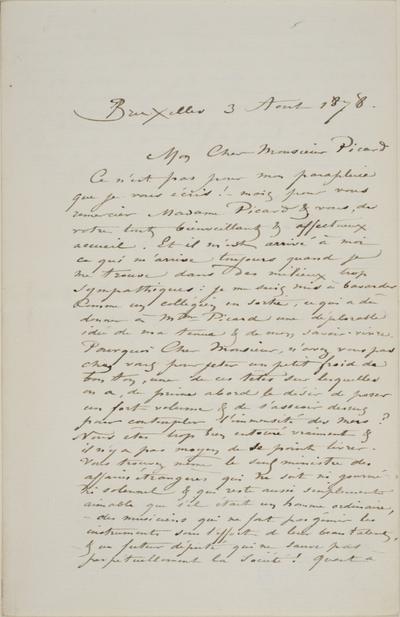 Bruxelles 3 Aout 1878.
Mon Cher Monsieur Picard
Ce n'est pas pour mon parapluie
que je vous écris! - mais pour vous
remercier Madame Picard & vous, de
votre tout bienveillant & affectueux
accueil. Et il m'est arrivé à moi
ce qui m'arrive toujours quand je
me trouve dans des milieux trop
sympathiques: je me suis mis à bavarder
comme un collégien en sortie, ce qui a dû
donner à Mme Picard une déplorable
idée de ma tenue & de mon savoir-vivre.
Pourquoi Cher Monsieur, n'avez vous pas
chez vous pour jeter un petit froid de
bon ton, une de ces têtes sur lesquelles
on a, de prime abord le désir de poser
un fort volume & de s'asseoir dessus
pour contempler l'immensité des mers?
Vous êtes trop bien entouré vraiment &
il n'y a pas moyen de se point livrer.
Vous trouvez même le seul ministre des
affaires étrangères qui ne soit ni gourmé
ni solennel & qui reste aussi simplement
aimable que s'il était un homme ordinaire,
- des musiciens qui ne font pas gémir les
instruments sous l'effort de leur beau talent,
& un futur député qui ne sauve pas
perpétuellement la Société! Quant à